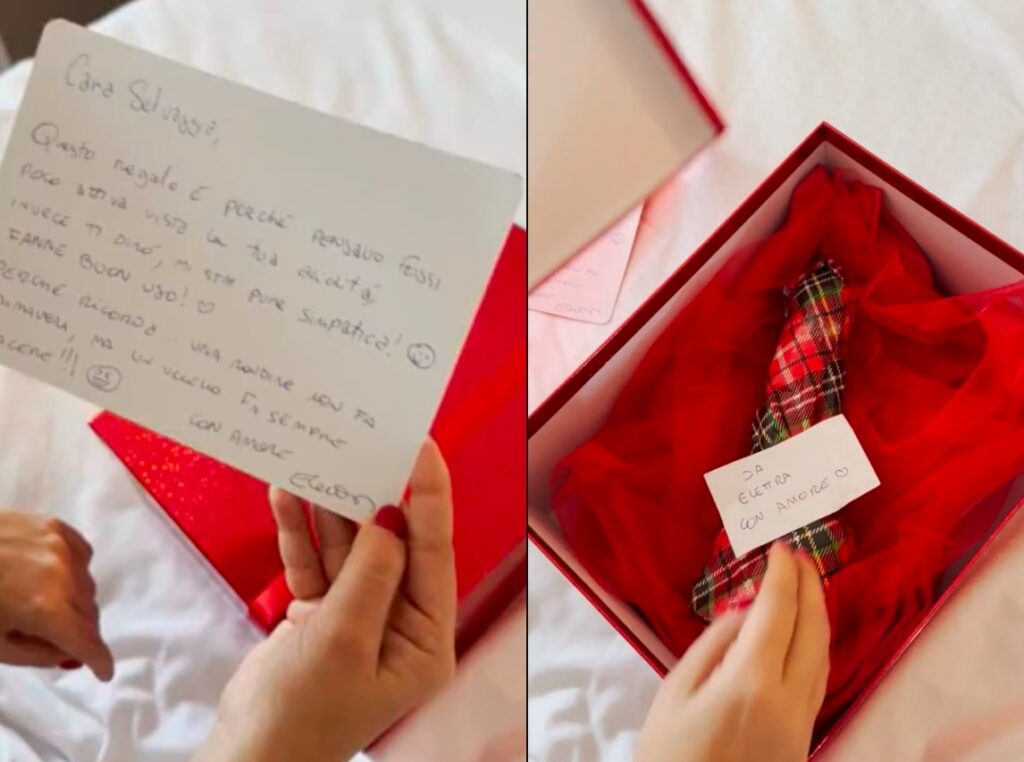 Cara Selvaggia,
Questo regalo è perché pensavo fossi
poco attiva vista la tua acidità,
invece ti dirò, mi stai pure simpatica! ☺
Fanne buon uso! ♡
perché ricorda.. una rondine non fa
imavera, ma un uccello fa sempre
acere!!!
con amore
Elettra
DA
ELETTRA
CON AMORE ♡